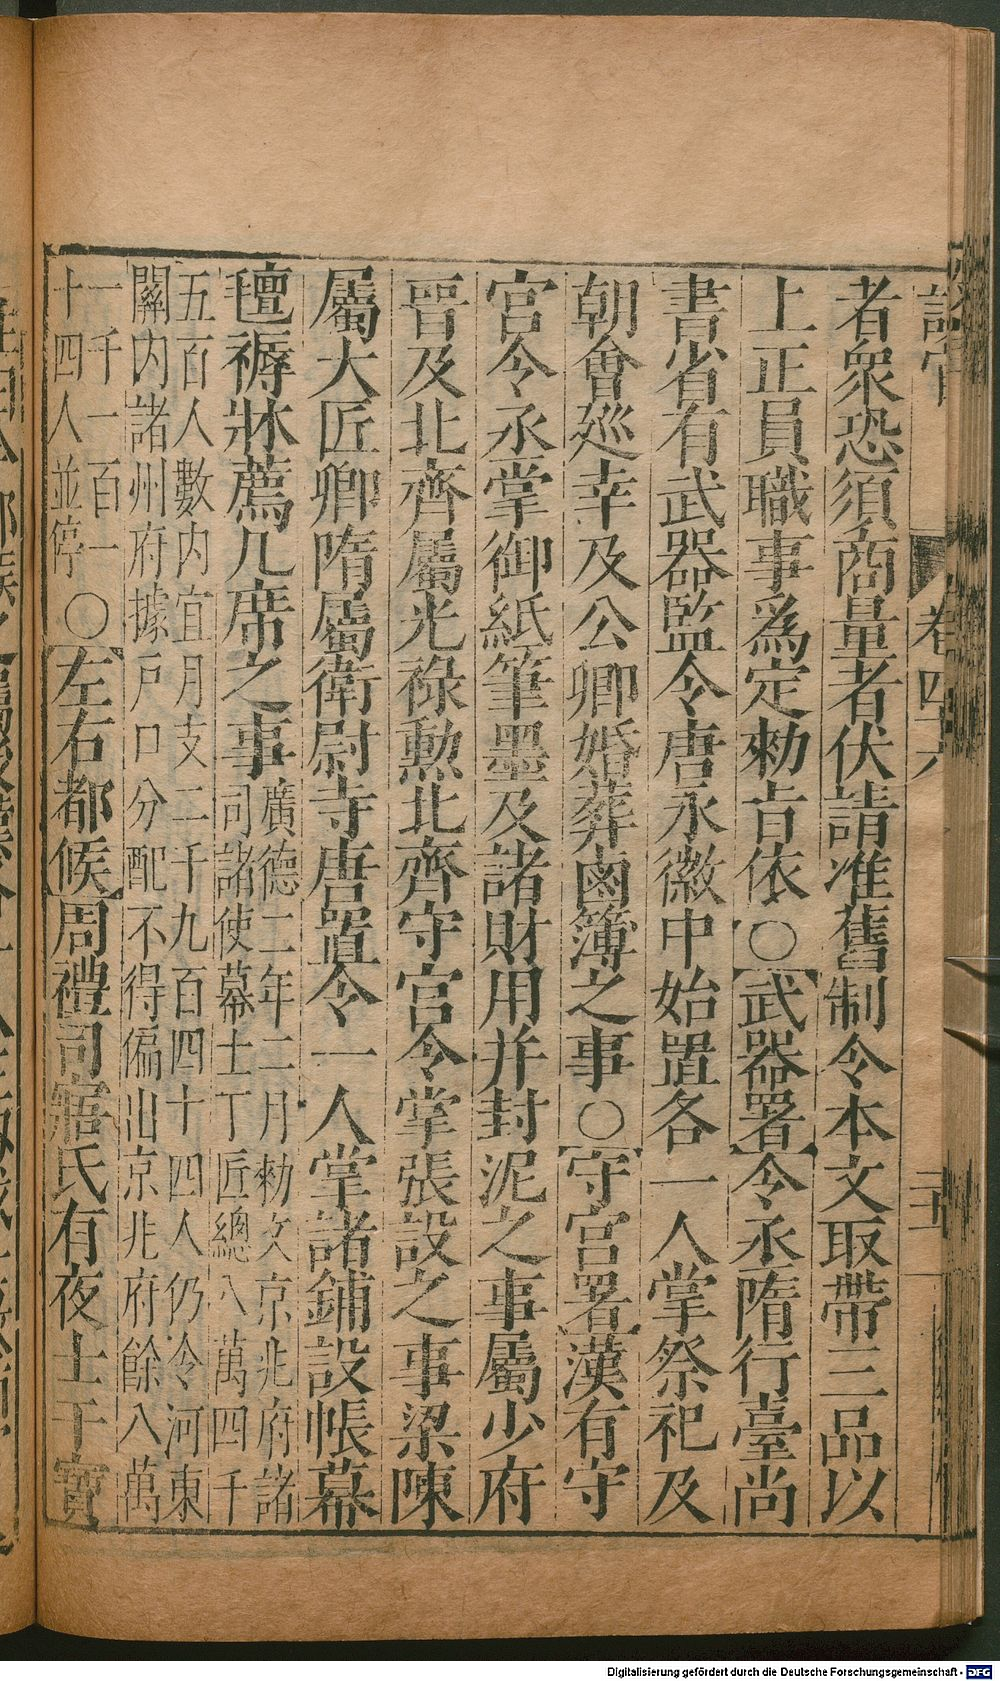 卷四六
者衆恐須商量者伏請准舊制令本文取帶三品以
上正員職事爲定勑旨依○武器署令丞隋行臺尚
書省有武器監令唐永徽中始置各一人掌祭祀及
朝會巡幸及公卿婚葬鹵簿之事○守宮署漢有守
宮令丞掌御紙筆墨及諸財用并封泥之事屬少府
晉及北齊屬光祿勲北齊守宮令掌張設之事梁陳
屬大匠卿隋屬衛尉寺唐置令一人掌諸鋪設帳幕
氊褥牀薦几席之事
廣德二年二月勑文京兆府諸
司諸使幕士丁匠總八萬四千
五百人數内宜月支二千九百四十四人仍令河東
關内諸州府據戶口分配不得偏出京兆府餘八萬
一千一百一
十四人並停
○左右都候周禮司寤氏有夜士干寶
Digitalisierung gefördert durch die Deutsche Forschungsgemeinschaft - DFG